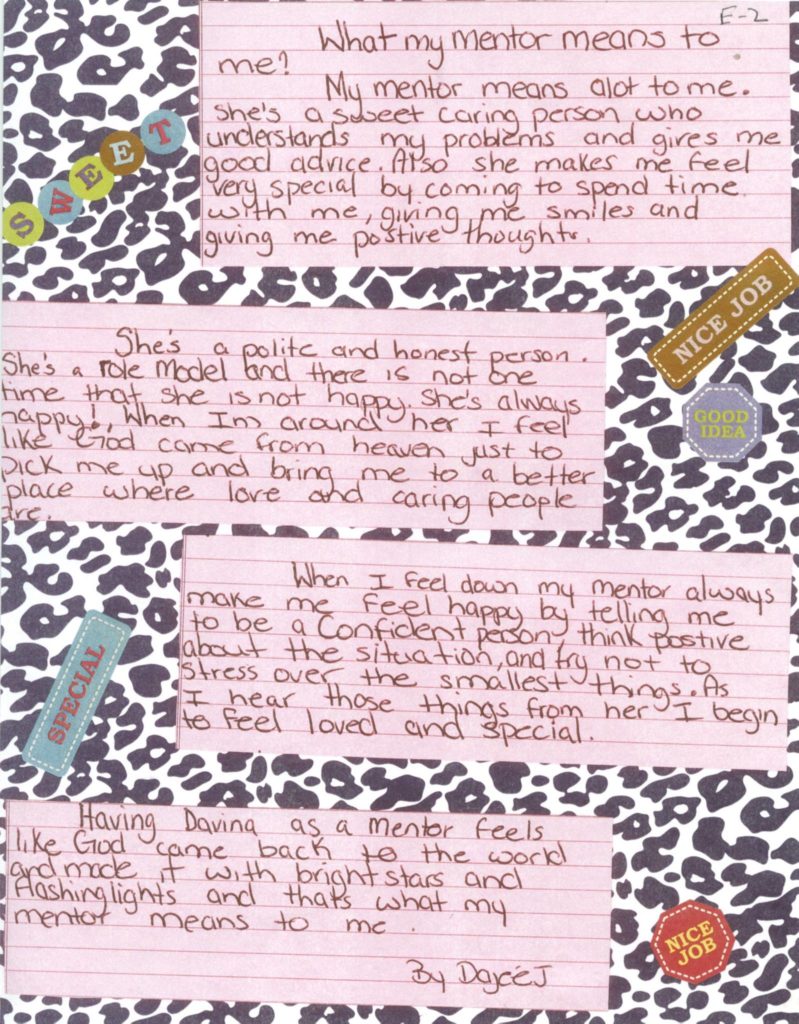 E-2
What my mentor means to
me?
My mentor means alot to me.
She's a sweet caring person who
understands my problems and gives me
good advice. Also she makes me feel
very special by coming to spend time
with me, giving me smiles and
giving me postive thoughts.
SWEET
NICE JOB
She's a polite and honest person.
She's a role model and there is not one
time that she is not happy. She's always
happy!, When Im around her I feel
like God came from heaven just to
pick me up and bring me to a better
place where love and caring people
are.
GOOD
IDEA
When I feel down my mentor always
make me feel happy by telling me
to be a Confident person, think postive
about the situation, and try not to
stress over the smallest things. As
I hear those things from her I begin
to feel loved and special.
SPECIAL
Having Davina as a mentor feels
like God came back to the world
and made it with bright stars and
flashing lights and thats what my
mentor means to me.
By Dajeé J
NICE
JOB